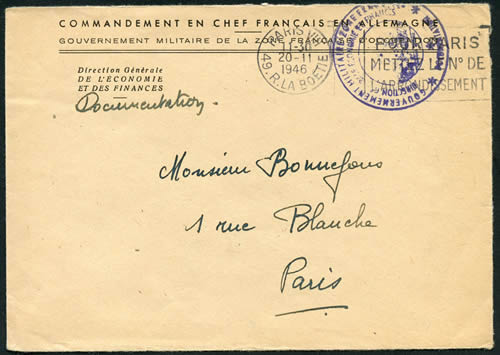 COMMANDEMENT EN CHEF FRANÇAIS EN ALLEMAGNE
GOUVERNEMENT MILITAIRE DE LA ZONE FRANÇAISE D'OCCUPATION
Direction Générale
DE L'ECONOMIE
ET DES FINANCES
Documentation.
PARIS VIII
17-30
20-11
1946
49, R. LA BOETIE
POUR PARIS
METTEZ LE N° DE
L'ARRONDISSEMENT
GOUVERNEMENT MILITAIRE
DIRECTION
Monsieur Bonnefons
1 rue Blanche
Paris